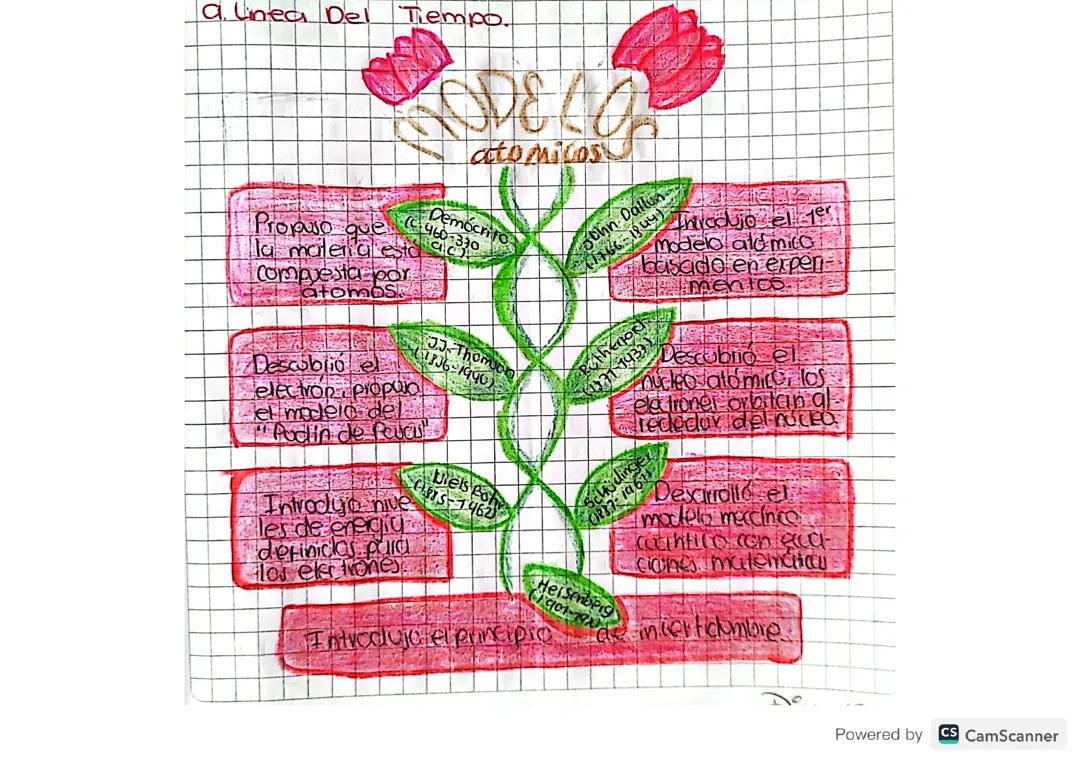 a. Linea Del Tiempo.
MODELOS
atomicos
Demócrito
(c. 460-370
a.c.)
Propuso que
la materia esta
compuesta por
atomos.
John Dalton
(1766-1844)
Introdujo el 1er
modelo atómico
basado en experi-
mentos.
J.J-Thomson
(1856-1940)
Descubrió el
electrón, propuso
el modelo del
"Pudin de Pasas"
Rutherford
(1871-1937)
Descubrió el
núcleo atómico, los
electrones orbitan al-
rededor del núcleo.
Niels Bohr
(1885-1962)
Introdujo nive
les de energía
definidos para
los electrones.
Schrödinger
(1887-1961)
Desarrolló el
modelo mecánico
cuántico con ecua-
ciones matemáticas
Heisenberg
(1901-
Introdujo el principio de incertidumbre.
Powered by CS CamScanner